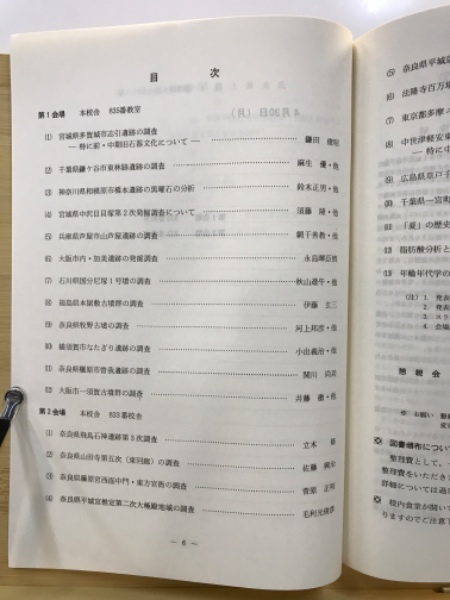 目　次
第1会場　本校舎　835番教室
(1) 宮城県多賀城市志引遺跡の調査
― 特に前・中期旧石器文化について ― 鎌田
(2) 千葉県鎌ケ谷市東林跡遺跡の調査 麻生 優・他
(3) 神奈川県相模原市橋本遺跡の黒曜石の分析 鈴木正男・他
(4) 宮城県中沢目貝塚第2次発掘調査について 須藤 隆・他
(5) 兵庫県芦屋市山芦屋遺跡の調査 網干善教・他
(6) 大阪市内・加美遺跡の発掘調査 永島暉臣慎
(7) 石川県国分尼塚1号墳の調査 秋山進午・他
(8) 福島県本屋敷古墳群の調査 伊藤 玄三
(9) 奈良県牧野古墳の調査 河上邦彦・他
(10) 横須賀市なたぎり遺跡の調査 小出義治・他
(11) 奈良県橿原市曽我遺跡の調査 関川 尚功
(12) 大阪市一須賀古墳群の調査 井藤 徹・他
第2会場　本校舎　833番校舎
(1) 奈良県飛鳥石神遺跡第3次調査 立木 修
(2) 奈良県山田寺第五次(東回廊)の調査 佐藤
(3) 奈良県藤原宮西面中門・東方官衙の調査 菅原 正明
(4) 奈良県平城宮推定第二次大極殿地域の調査 毛利光俊彦
― 6 ―
(5) 奈良県平城
(6) 法隆寺百万
(7) 東京都多摩
(8) 中世津軽安東
― 特に中
(9) 広島県草戸千
(10) 千葉県一宮町
(11) 「夏」の歴史
(12) 脂肪酸分析と
(13) 年輪年代学の
(注) 1. 発表
2. 発表
3. スラ
4. 会場
懇親会
図書頒布につい
整理費として、
整理費をいただき
詳細については
校内食堂が開い
りますのでご注意